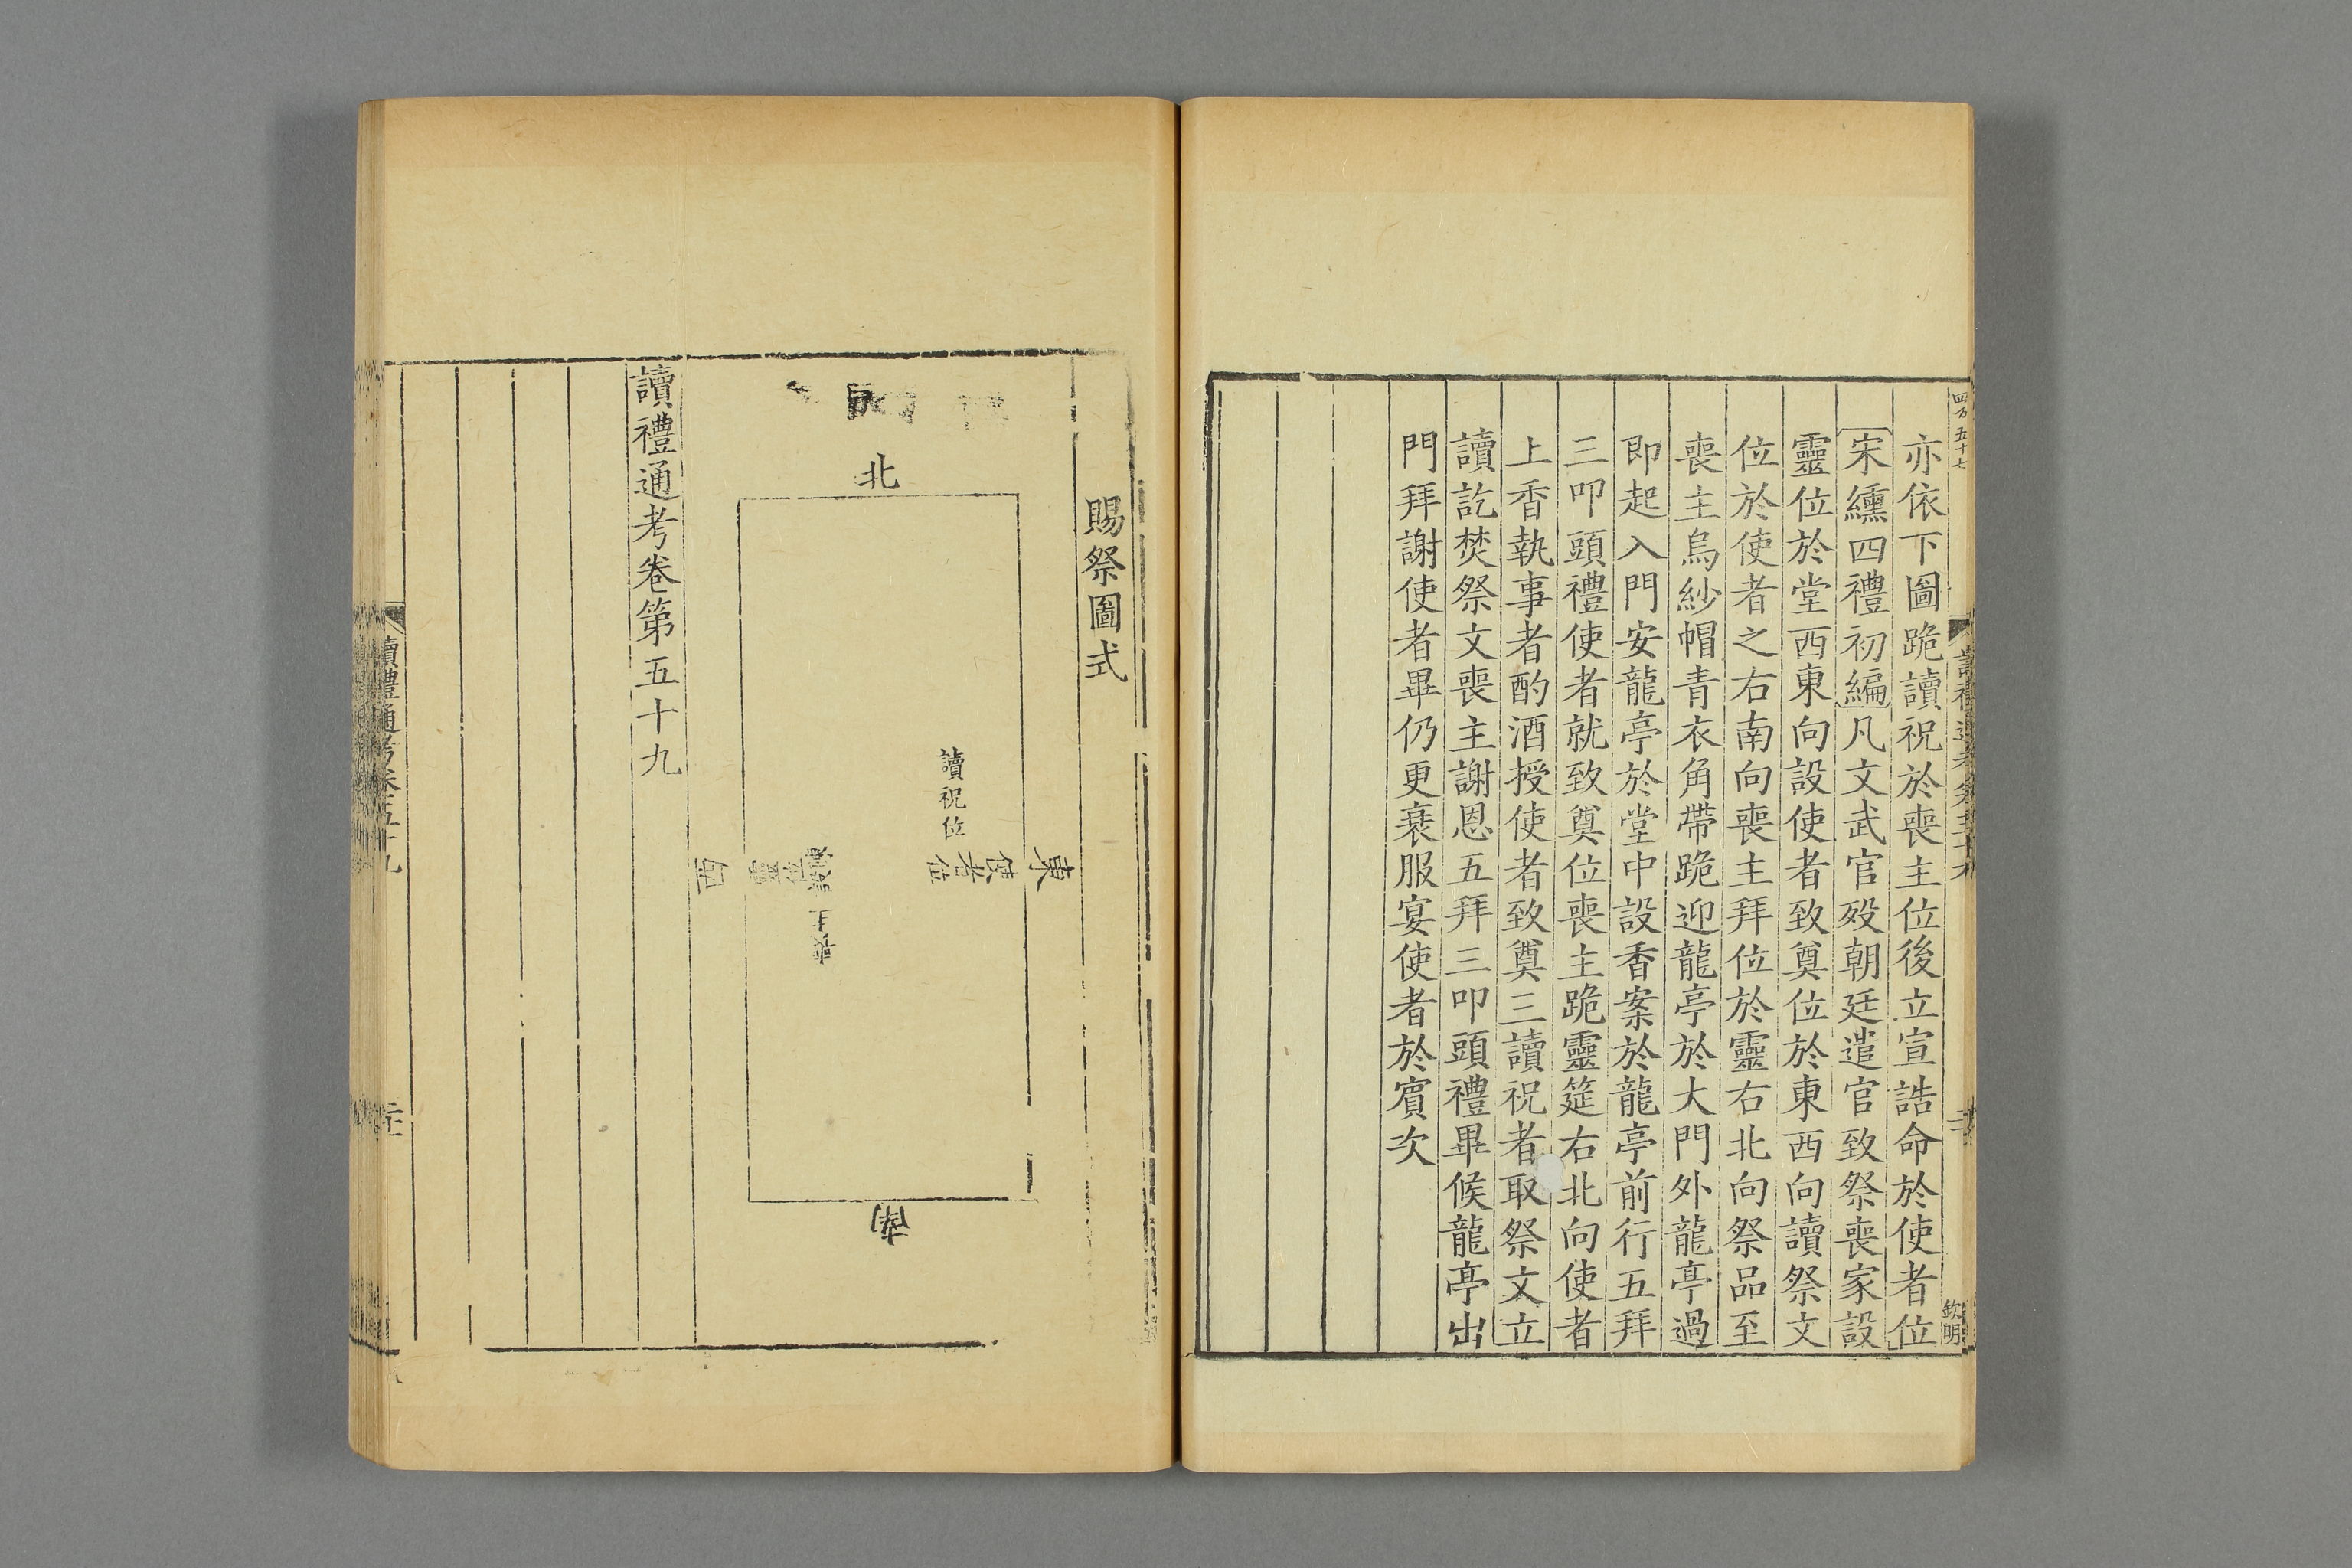 亦依下圖跪讀祝於喪主位後立宣誥命於使者位
宋纁四禮初編凡文武官歿朝廷遣官致祭喪家設
靈位於堂西東向設使者致奠位於東西向讀祭文
位於使者之右南向喪主拜位於靈右北向祭品至
喪主烏紗帽青衣角帶跪迎龍亭於大門外龍亭過
即起入門安龍亭於堂中設香案於龍亭前行五拜
三叩頭禮使者就致奠位喪主跪靈筵右北向使者
上香執事者酌酒授使者致奠三讀祝者取祭文立
讀訖焚祭文喪主謝恩五拜三叩頭禮畢候龍亭出
門拜謝使者畢仍更衰服宴使者於賓次
賜祭圖式
北
東
使者位
讀祝位
喪主
西
南
讀禮通考卷第五十九
讀禮通考卷五十九